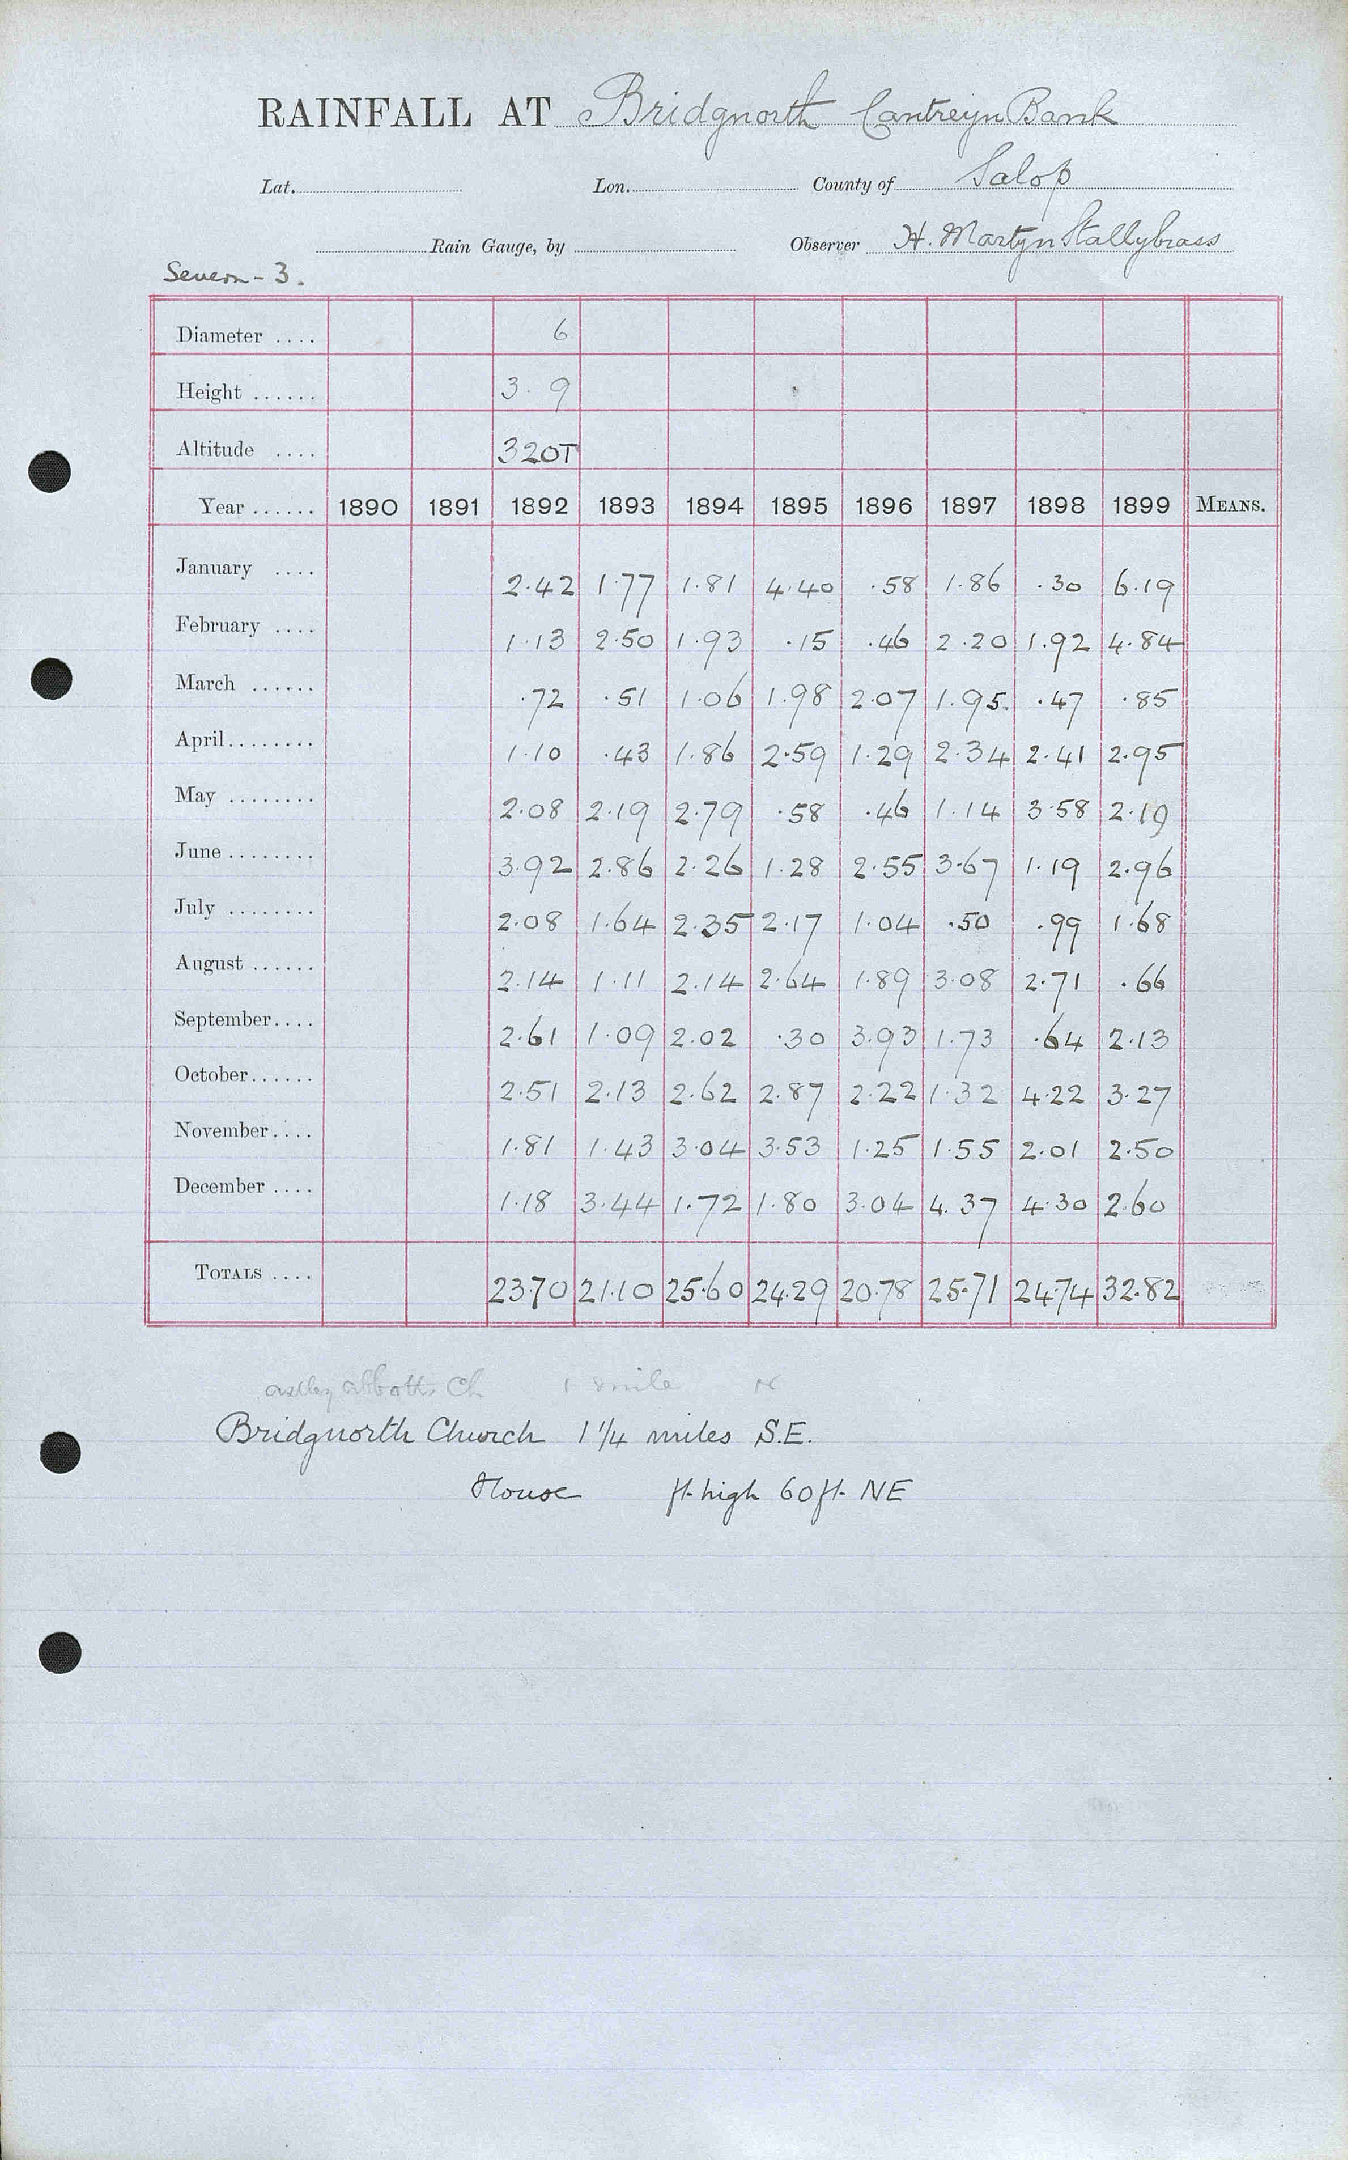 RAINFALL AT Bridgnorth Cantreyn Bank
Lat. Lon. County of Salop
Rain Gauge, by Observer H. Martyn Stallybrass
Severn - 3.
Diameter .... 6
Height ...... 3. 9
Altitude .... 320T
Year ...... 1890 1891 1892 1893 1894 1895 1896 1897 1898 1899 MEANS.
January .... 2.42 1.77 1.81 4.40 .58 1.86 .30 6.19
February .... 1.13 2.50 1.93 .15 .46 2.20 1.92 4.84
March ...... .72 .51 1.06 1.98 2.07 1.95. .47 .85
April........ 1.10 .43 1.86 2.59 1.29 2.34 2.41 2.95
May ........ 2.08 2.19 2.79 .58 .46 1.14 3.58 2.19
June ........ 3.92 2.86 2.26 1.28 2.55 3.67 1.19 2.96
July ........ 2.08 1.64 2.35 2.17 1.04 .50 .99 1.68
August ...... 2.14 1.11 2.14 2.64 1.89 3.08 2.71 .66
September.... 2.61 1.09 2.02 .30 3.93 1.73 .64 2.13
October...... 2.51 2.13 2.62 2.87 2.22 1.32 4.22 3.27
November.... 1.81 1.43 3.04 3.53 1.25 1.55 2.01 2.50
December .... 1.18 3.44 1.72 1.80 3.04 4.37 4.30 2.60
TOTALS .... 23.70 21.10 25.60 24.29 20.78 25.71 24.74 32.82
Astley Abbotts Ch 1 mile N
Bridgnorth Church 1 1/4 miles S.E.
House ft. high 60 ft. NE